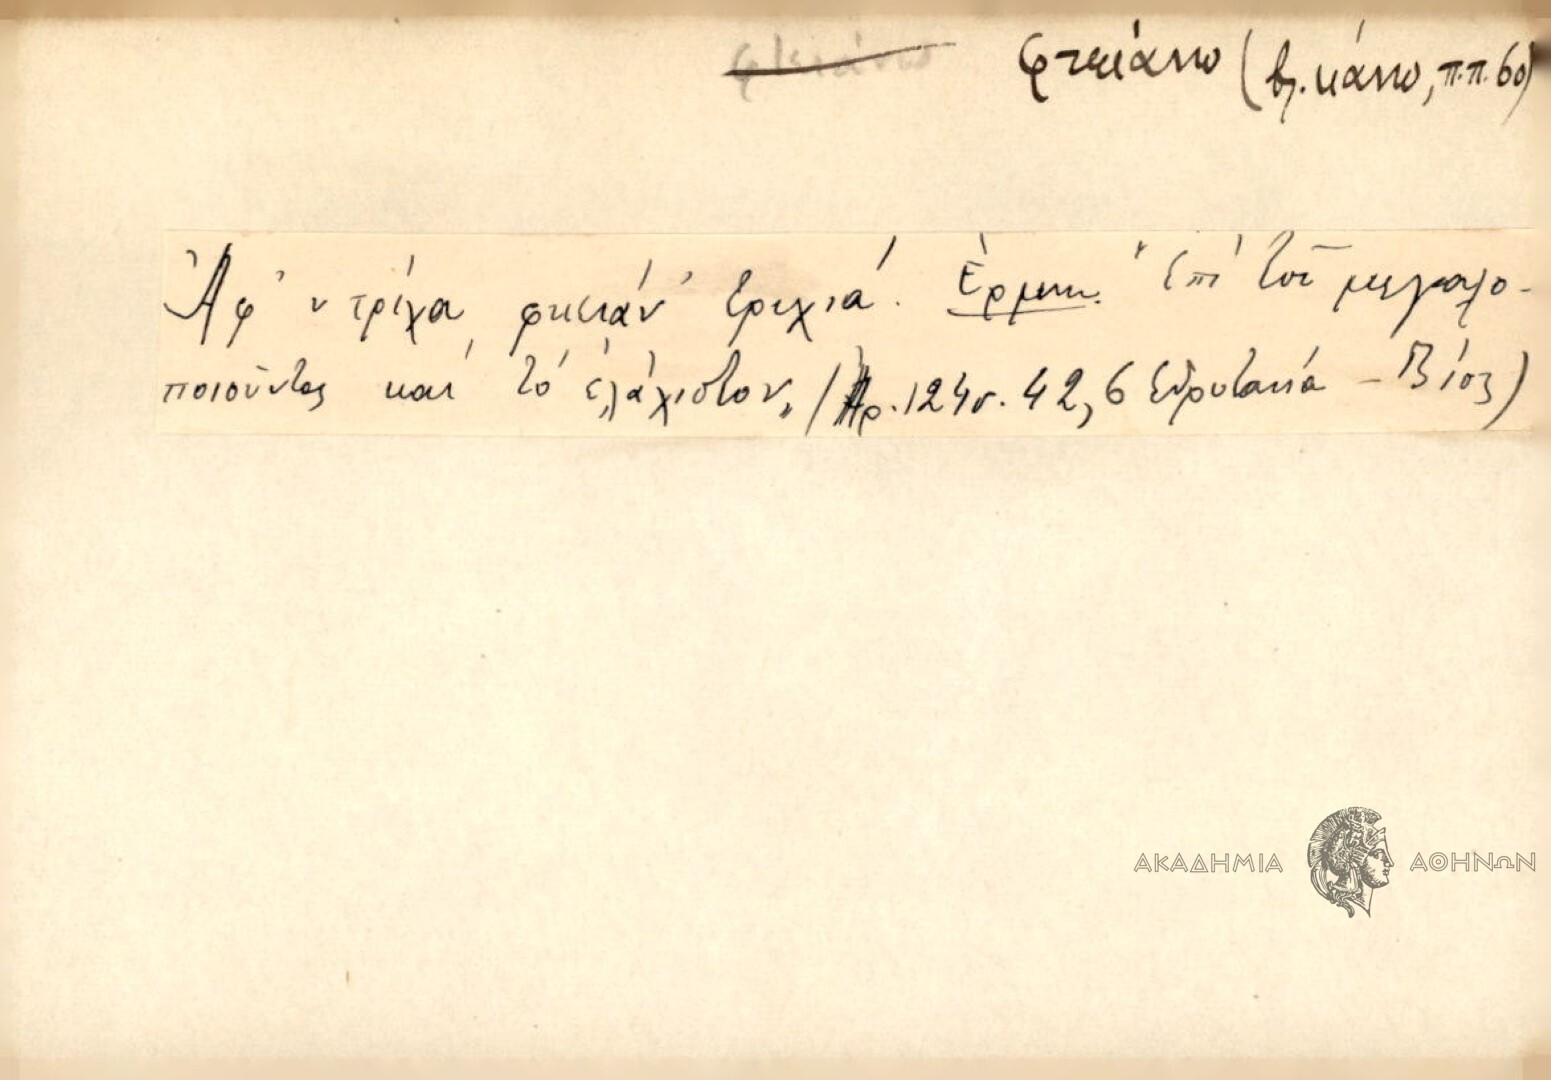 φτειάνω (βλ. κάνω, π.π. 60)
Ἀφ' ν τρίχα φτειάν' τριχιά. Ἑρμην. "Ἐπὶ τοῦ μεγαλο-
ποιοῦντος καὶ τὸ ἐλάχιστον„ (Ἀρ. 124 σ. 42, 6 Εὐρυτανία -
ΑΚΑΔΗΜΙΑ ΑΘΗΝΩΝ